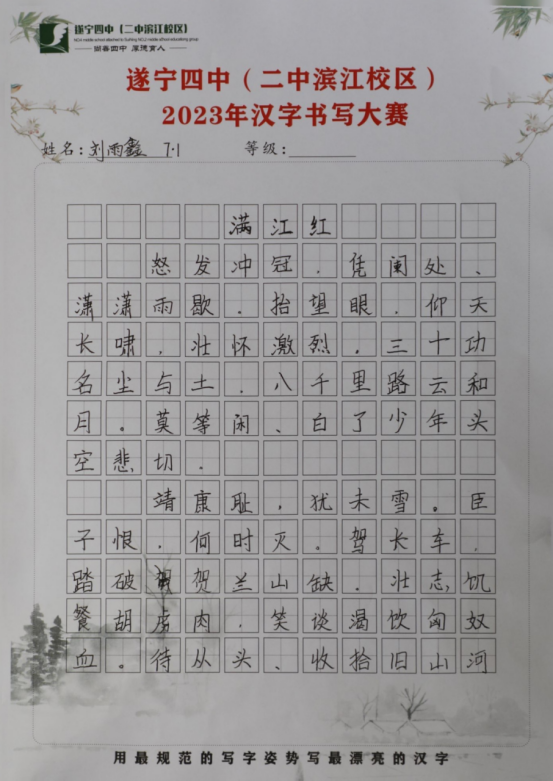 遂宁四中（二中滨江校区）
尚善四中 厚德育人
遂宁四中（二中滨江校区）
2023年汉字书写大赛
姓名：刘雨鑫 7.1 等级：
满江红
怒发冲冠．凭阑处、
潇潇雨歇．抬望眼．仰天
长啸．壮怀激烈．三十功
名尘与土．八千里路云和
月。莫等闲、白了少年头
空悲切．
靖康耻，犹未雪。臣
子恨．何时灭。驾长车．
踏破贺兰山缺．壮志饥
餐胡虏肉．笑谈渴饮匈奴
血。待从头、收拾旧山河
用最规范的写字姿势写最漂亮的汉字